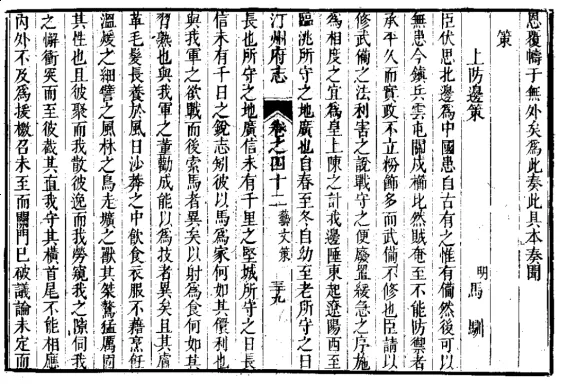 恩覆幬于無外矣為此奏此具本奏聞
策
上防邊策
明馬馴
臣伏思北邊為中國患自古有之惟有備然後可以
無患今鎮兵雲屯關戍櫛比然賊奄至不能防禦者
承平久而實政不立粉飾多而武備不修也臣請以
修武備之法利害之說戰守之便廢置緩急之序施
為相度之宜為皇上陳之計我邊陲東起遼陽西至
臨洮所守之地廣也自春至冬自幼至老所守之日
汀州府志
卷之四十二
藝文策
三九
長也所守之地廣信未有千里之堅城所守之日長
信未有千日之銳志矧彼以馬為家何如其儇利也
與我軍之欲戰而後索馬者異矣以射為食何如其
習熟也與我軍之董勸成能以為技者異矣且其膚
革毛髮長養於風日沙莽之中飲食衣服不藉烹飪
溫煖之細譬之風林之鳥走壙之獸其桀驁猛厲固
其性也且彼聚而我散彼逸而我勞窺我之隙伺我
之懈衝突而至彼截其直我守其橫首尾不能相應
內外不及為援檄召未至而關門已破議論未定而